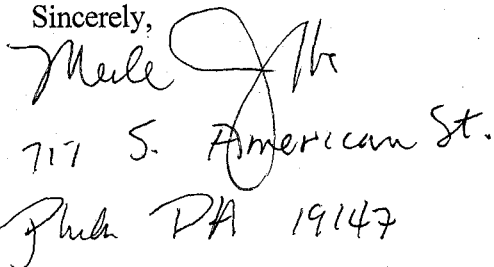 Sincerely,
Merle
717 S. American St.
Phila PA 19147